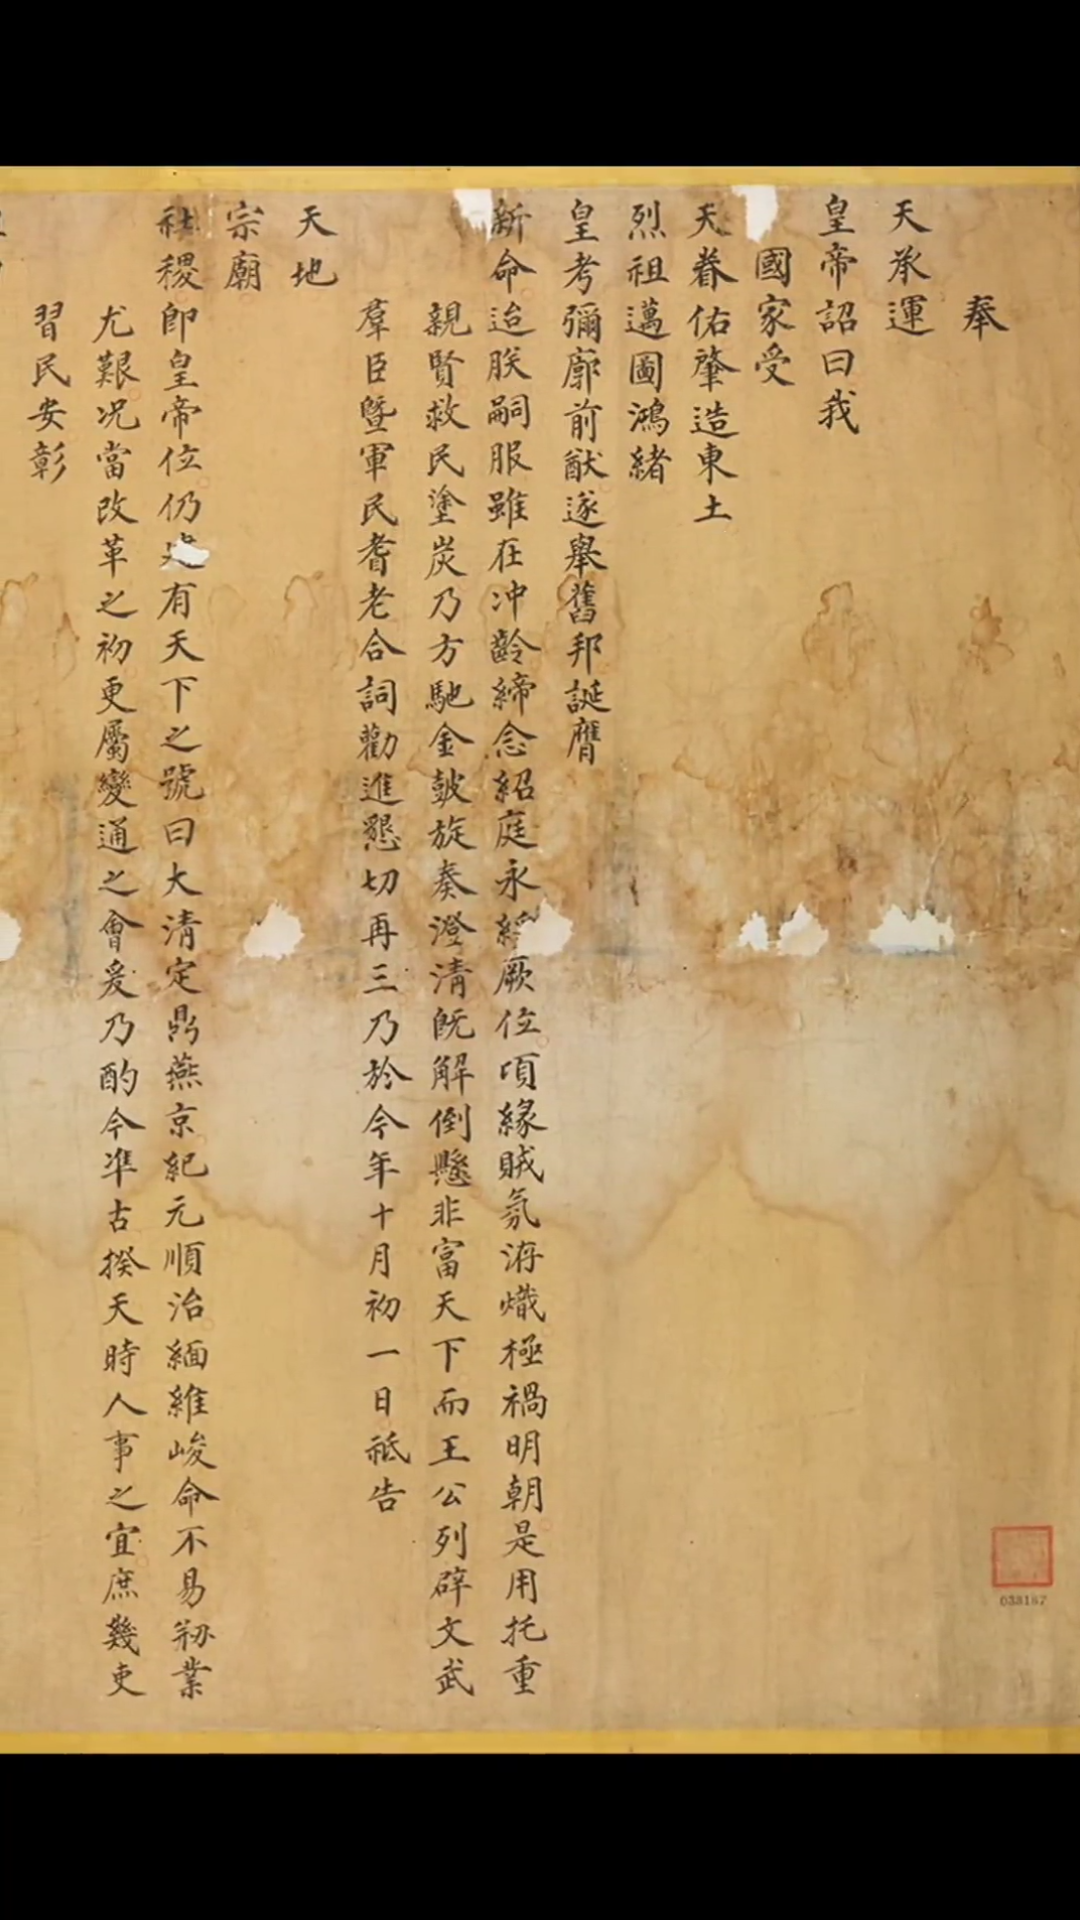 奉
天承運
皇帝詔曰我
國家受
天眷佑肇造東土
烈祖邁圖鴻緒
皇考彌廓前猷遂舉舊邦誕膺
新命迨朕嗣服雖在冲齡締念紹庭永綏厥位頃緣賊氛洊熾極禍明朝是用托重
親賢救民塗炭乃方馳金鼓旋奏澄清旣解倒懸非富天下而王公列辟文武
羣臣曁軍民耆老合詞勸進懇切再三乃於今年十月初一日祗告
天地
宗廟
社稷卽皇帝位仍 有天下之號曰大清定鼎燕京紀元順治緬維峻命不易剏業
尤艱况當改革之初更屬變通之會爰乃酌今凖古揆天時人事之宜庶幾吏
習民安彰
038187